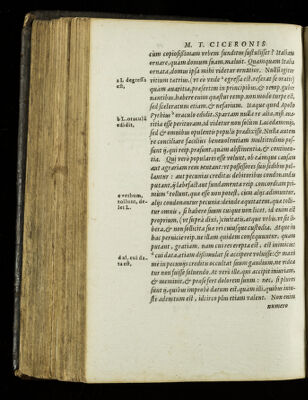 M. T. CICERONIS
cum copiosissimam urbem funditus sustulisset? Italiam
ornare, quam domum suam, maluit. Quanquam Italia
ornata, domus ipsa mihi videtur ornatior. Nullum igi
vitium tetrius, (ut eò unde egressa est, referat se oratio)
quàm avaritia, præsertim in principibus, & remp. guber
nantibus. habere enim quæstui remp. non modo turpe est,
sed sceleratum etiam, & nefarium. Itaque quod Apollo
Pythius oraculo edidit, Spartam nulla re alia, nisi ava
ritia esse perituram, id videtur non solùm Lacedæmoniis,
sed & omnibus opulentis populis prædixisse. Nulla autem
re conciliare facilius benevolentiam multitudinis pos
sunt ij, qui reip. præsunt, quàm abstinentia, & continen
tia. Qui verò populares esse volunt, ob eamque causam
aut agrariam rem tentant, ut possessores suis sedibus pel
lantur: aut pecunias creditas debitoribus condonandas
putant, ij labefactant fundamenta reip. concordiam pri
mùm
tollunt, quæ esse non potest, cùm aliis adimuntur,
aliis condonantur pecuniæ. deinde æquitatem, quæ tolli
tur omnis, si habere suum cuique non licet. id enim est
proprium, (ut suprà dixi,) civitatis, atque urbis, ut sit li
bera, & non sollicita suæ rei cuiusque custodia. Atque in
hac pernicie reip. ne illam quidem consequuntur, quam
putant, gratiam. nam cui res erepta est, est inimicus:
cui data, etiam dissimulat se accepisse voluisse: & maxi
mè in pecuniis creditis occultat suum gaudium, ne videa
tur non fuisse solvendo. At verò ille, qui accipit iniuriam,
& meminit, & præ se fert dolorem suum: nec, si plures
sunt ij, quibus improbè datum est, quàm illi, quibus iniu
stè ademtum est, idcirco plus etiam valent. Non enim
numero
a L. degressa
est,
b L. oraculū
edidit,
c verbum,
tollunt, de-
let L.
d al. cui da-
ta est,